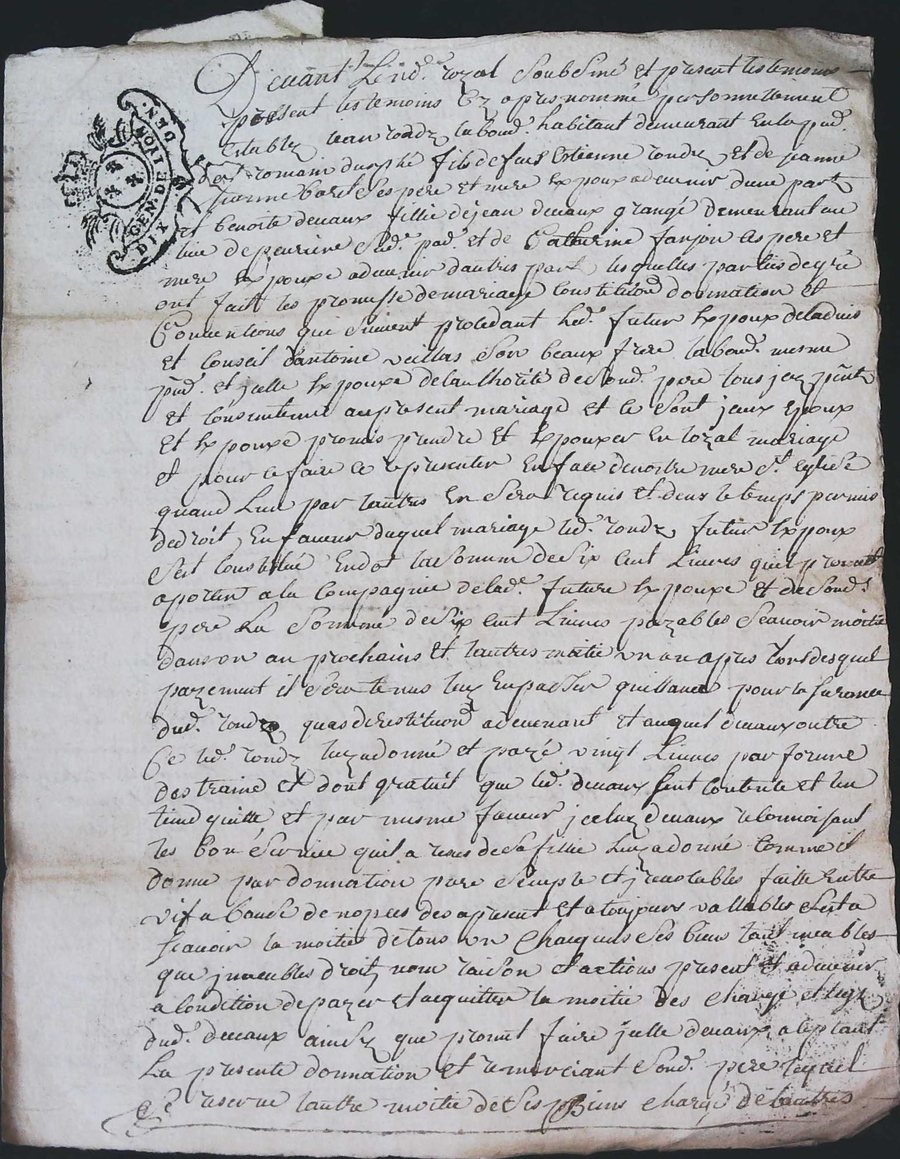 GEN. DE LION
DIX DEN.
Devant Le nd.re royal Soubsiné et present les temoins
present les temoins Cy apres nommé personnellement
Etably Jean rondz labour. habitant demeurant en la pad.
de st romain fils de feus Estienne rondz et de jeanne
ses pere et mere Expoux advenir dune part
et benoite devaux fillie de jean devaux grangé demeurant au
lieu de Sud. pad. et de Catherine fanjon les pere et
mere Expouxe advenir dautres part lesquelles parties de gré
ont fait les promesse de mariage Constitution donnation et
Conventions qui suivent procedant led. futur Expoux de ladvis
et Conseil dantoine veillas Son beaux frere labour. mesme
pad. et jcelle Expouxe de lauthorité de Sond. pere tous jcy pnts
et Consentents au present mariage et ce Sont jceux Epoux
et Expouxe promis prendre et Expouxer En loyal mariage
et pour ce faire Se representer En face de nostre mere Ste Eglise
quand Lun par lautres En Sera requis et deux le temps permis
de droit, En faveur duquel mariage led. rondz futur Expoux
Sest Constitué En dot la Somme de Six Cent Livres quil promet
aporter a la Compagnie de lad. future Expouxe et de Sond.
pere La Somme de Six Cent Livres payables Scavoir moitié
dans un an prochains et lautres moitié un an apres lors desquel
payement il Sera tenus luy En passer quittance pour la
dud. rondz quas de restitution advenant et auquel devaux outre
Ce led. rondz luy a donné et payé vingt Livres par forme
destraine et dont gratuit que led. devaux Sent Contente et len
tiend quitte et par mesme faveur jceluy devaux reconnoissant
les bon Service quil a reçus de Sa fillie Luy a donné Comme il
donne par donnation pure Simple et jrrevocables faitte Entre
vif a Cause de nopces des apresent et a toujours vallables Cest a
Scavoir la moitié de tous un Chacquns Ses biens tant meubles
que jmeubles droitz nom raison et actions present et advenir
a Condition de payer et acquitter la moitie des Charge et
dud. devaux ainsy que promt faire jcelle devaux aceptant
La presente donnation et remerciant Sond. pere lequel
Se reserve lautre moitie de Ses Biens Chargé de lautres